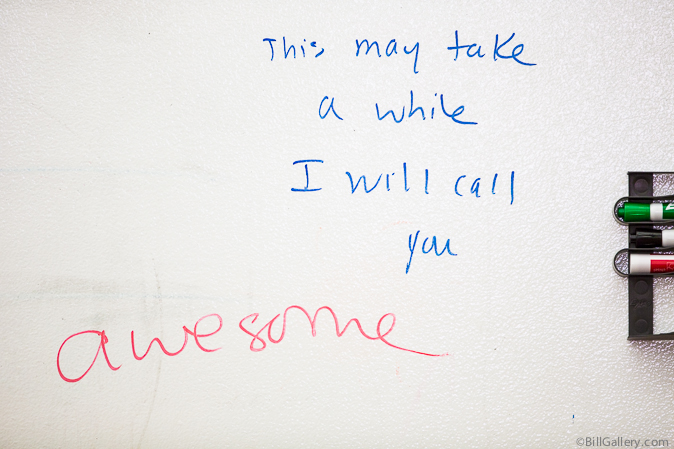 This may take
a while
I will call
you
awesome
©BillGallery.com